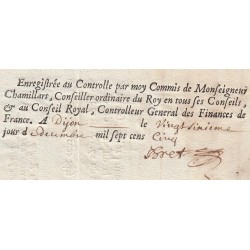 Enregistrée au Controlle par moy Commis de Monseigneur
Chamillars, Conseiller ordinaire du Roy en tous ses Conseils,
& au Conseil Royal, Controlleur General des Finances de
France. A Dijon le Vingt sixieme
jour d Decembre mil sept cens Cinq